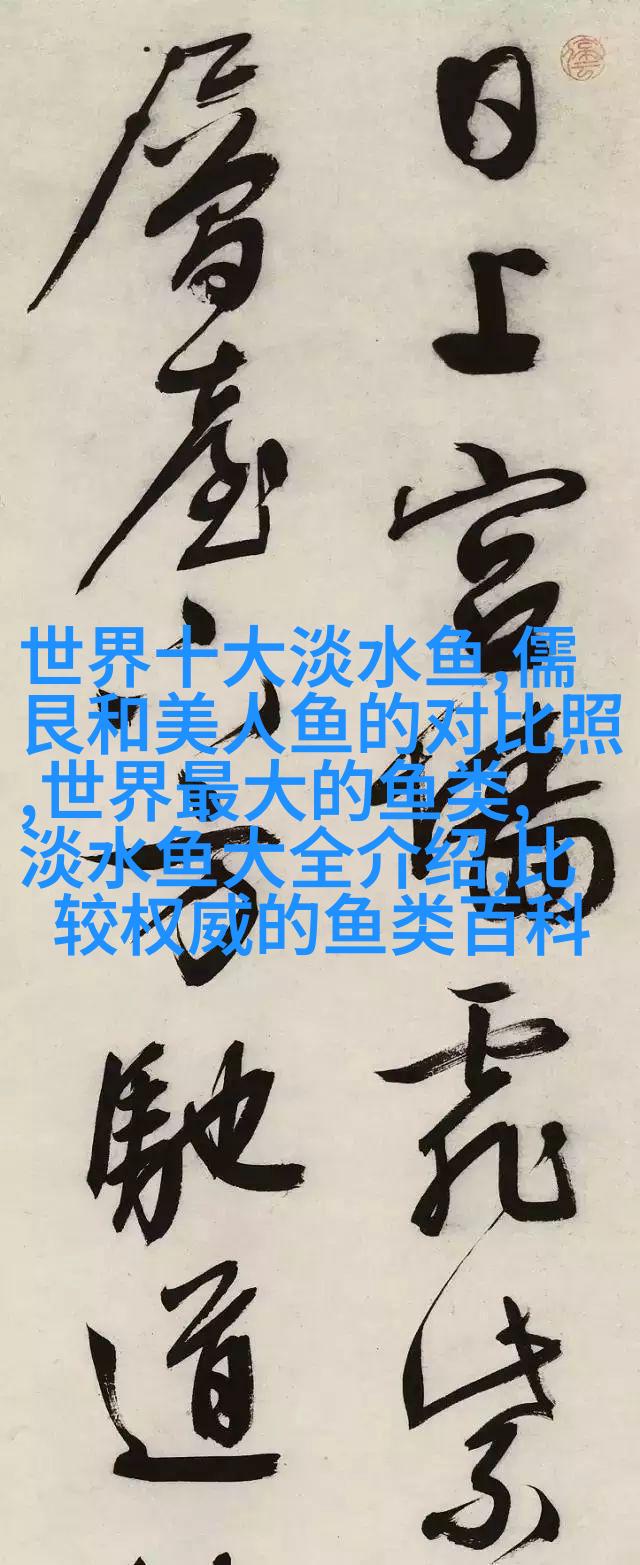 日上宮墻飛紫
層臺下方馳道
世界十大淡水鱼,儒
艮和美人鱼的对比照
,世界最大的鱼类,
淡水鱼大全介绍,比
较权威的鱼类百科